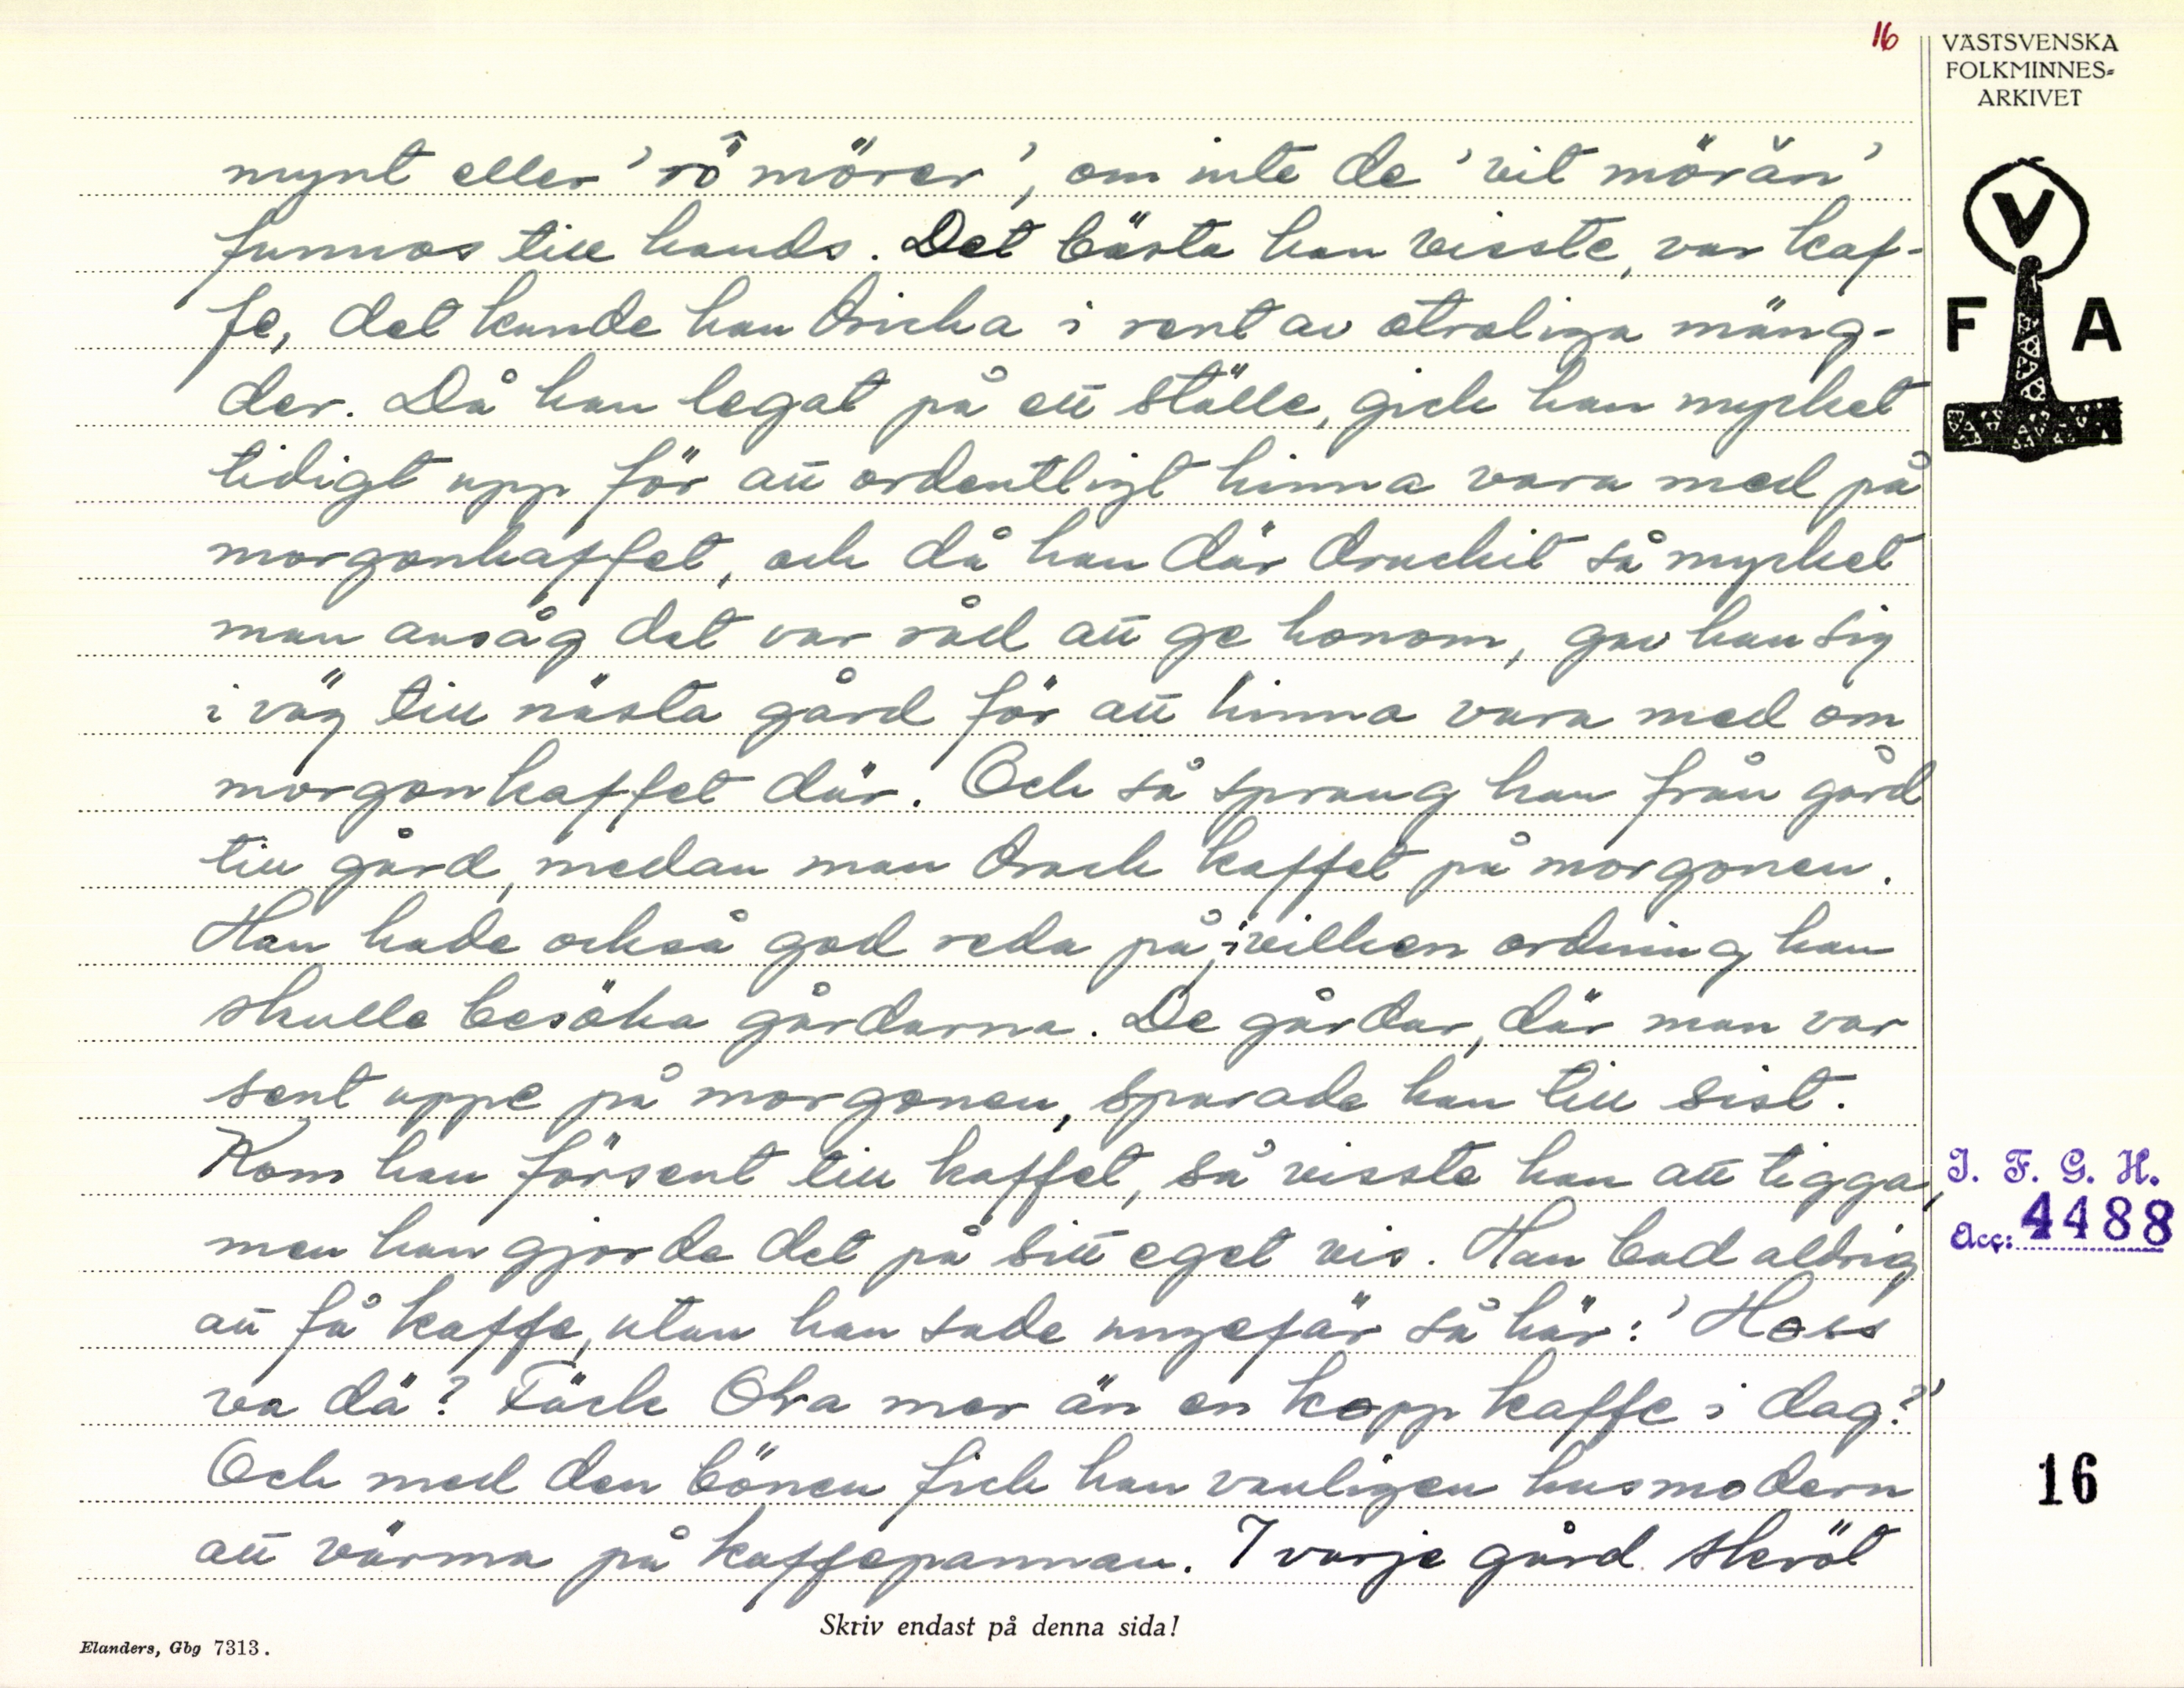 16
VÄSTSVENSKA
FOLKMINNES-
ARKIVET
V
F A
mynt eller 'rö mörer', om inte de 'vit mörän'
funnos till hands. Det bästa han visste, var kaf-
fe, det kunde han dricka i rent av otroliga mäng-
der. Då han legat på ett ställe, gick han mycket
tidigt upp för att ordentligt hinna vara med på
morgonkaffet, och då han där druckit så mycket
man ansåg det var råd att ge honom, gav han sig
i väg till nästa gård för att hinna vara med om
morgonkaffet där. Och så sprang han från gård
till gård, medan man drack kaffet på morgonen.
Han hade också god reda på, i vilken ordning han
skulle besöka gårdarna. De gårdar, där man var
sent uppe på morgonen, sparade han till sist.
Kom han försent till kaffet, så visste han att tigga,
men han gjorde det på sitt eget vis. Han bad aldrig
att få kaffe, utan han sade ungefär så här: 'Hoss
va dä? Fäck Ola mer än en kopp kaffe i dag?'
Och med den bönen fick han vanligen husmodern
att värma på kaffepannan. I varje gård skröt
I. F. G. H.
Acc: 4488
16
Skriv endast på denna sida!
Elanders, Gbg 7313.